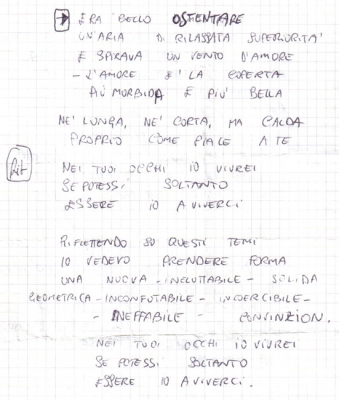 ERA BELLO OSTENTARE
UN'ARIA DI RILASSATA SUPERIORITA'
E SPIRAVA UN VENTO D'AMORE
- L'AMORE E' LA COPERTA
PIÙ MORBIDA E PIU' BELLA
NE' LUNGA, NE' CORTA, MA CALDA
PROPRIO COME PIACE A TE
Rit
NEI TUOI OCCHI IO VIVREI
SE POTESSI SOLTANTO
ESSERE IO A VIVERCI
RIFLETTENDO SU QUESTI TEMI
IO VEDEVO PRENDERE FORMA
UNA NUOVA - INELUTTABILE - SOLIDA
GEOMETRICA - INCONFUTABILE - INCOERCIBILE -
- INEFFABILE - CONVINZION.
NEI TUOI OCCHI IO VIVREI
SE POTESSI SOLTANTO
ESSERE IO A VIVERCI.